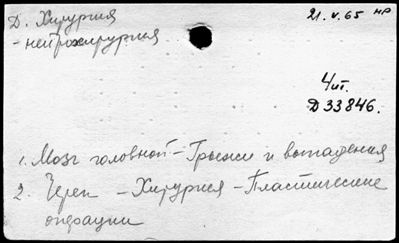 Д. Хирургия 21.V.65 нр
- нейрохирургия
Чит.
Д 33846.
1. Мозг головной - Грыжи и выпадения
2. Череп - Хирургия - Пластические
операции